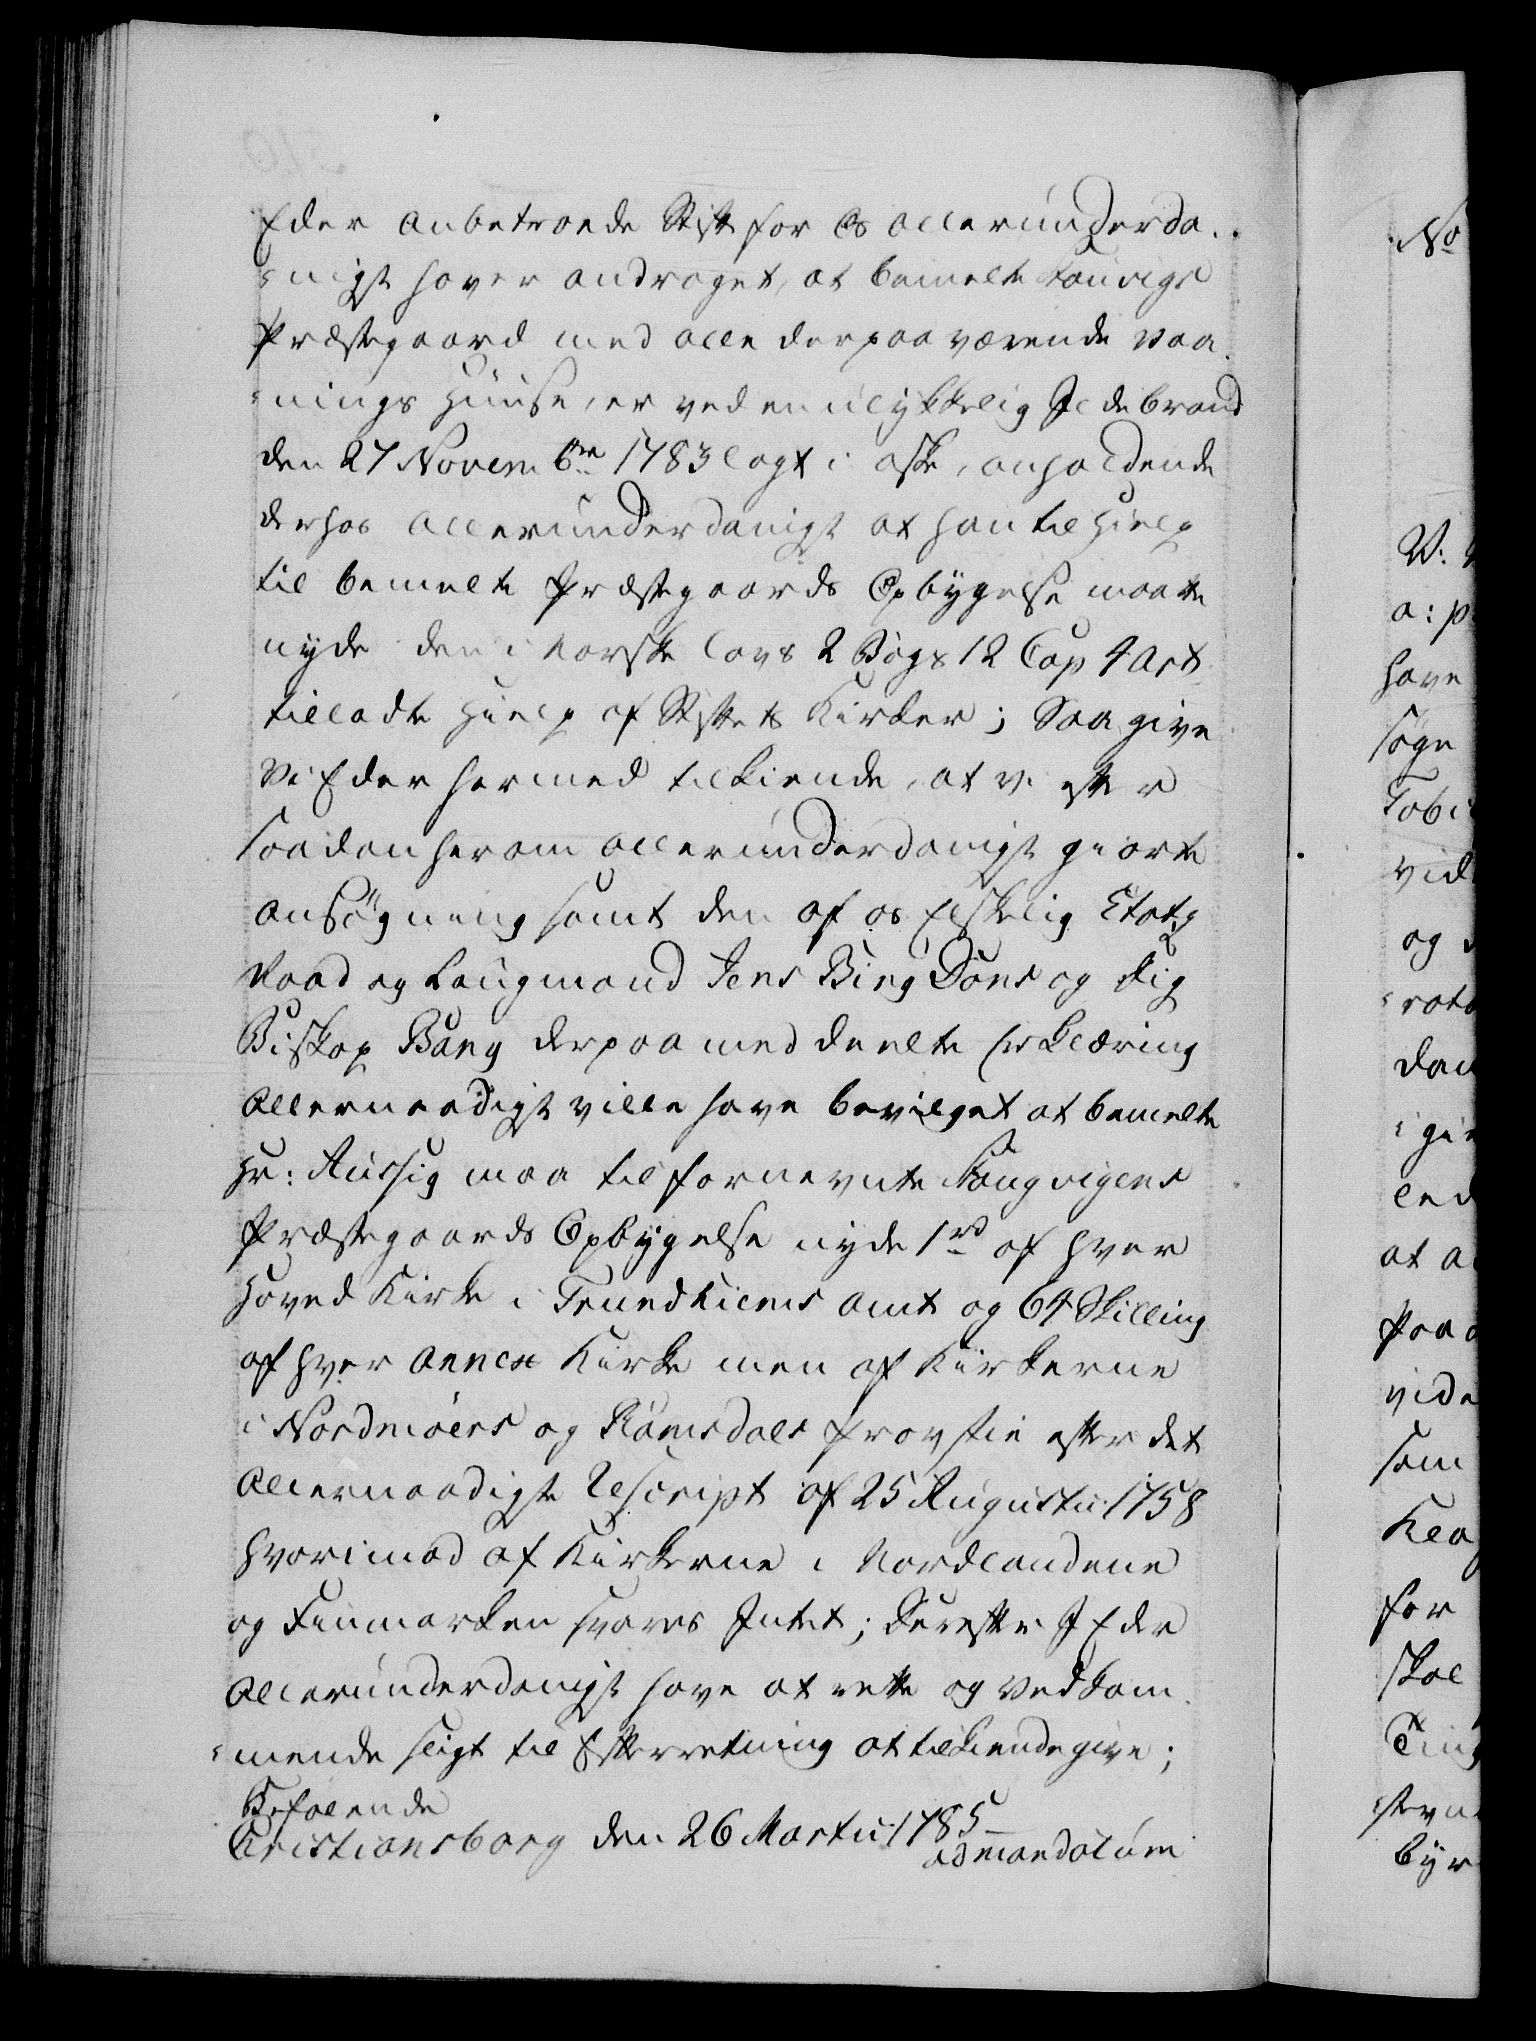 Eder anbetroede Stift for Os allerunderda-
=nigst haver andraget, at bemelte
Præstegaard med alle derpaa værende Vaa-
=nings Huuse, er ved en ulykkelig Ildebrand
den 27 Novembre 1783 lagt i aske, anholdende
derhos allerunderdanigst at han til Hielp
til bemelte Præstegaards Opbygelse maatte
nyde den i Norske Lovs 2 Bogs 12 Cap 4 Art
tilladte Hielp af Stiftets Kirker; Saa give
Vi Eder hermed tilkiende, at vi efter
saadan herom allerunderdanigst giorte
ansøgning samt den af os Elskelig Etatz
Raad og Laugmand Jens Bing Dons og dig
Biskop Bang derpaa meddeelte Erklæring
allernaadigst ville have bevilget at bemelte
Hr: Aussig maa til fornevnte
Præstegaards Opbygelse nyde 1 rd af hver
Hoved Kirke i Trundhiems amt og 64 Skilling
af hver annex Kirke men af Kirkerne
i Nordmøers og Romsdals Provstie efter det
allernaadigste Rescript af 25 Augustii 1758
hvorimod af Kirkerne i Nordlandene
og Finmarken svares Intet; Derefter I Eder
allerunderdanigst have at rette og vedkom-
=mende sligt til Efterretning at tilkiendegive;
Befalende
Cristiansborg den 26 Martii 1785
ad mandatum
No
W:
a: p
have
søge
Tobi
vid
og
dan
at a
paa
vide
som
for
skal